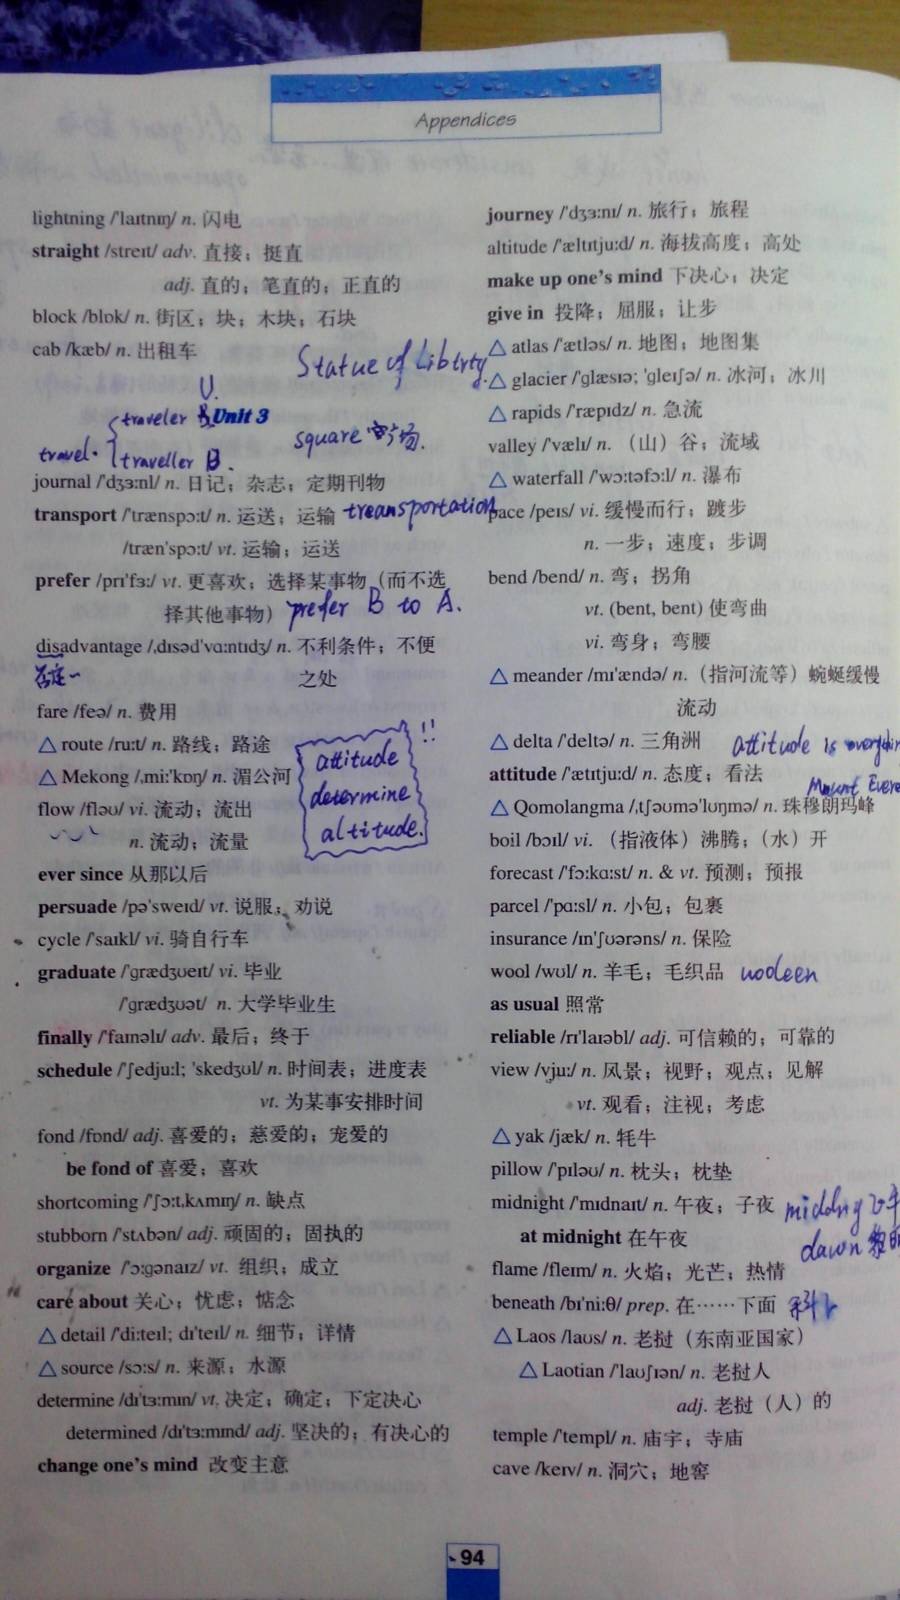 Appendices
lightning /'laɪtnɪŋ/ n. 闪电
straight /streɪt/ adv. 直接；挺直
adj. 直的；笔直的；正直的
block /blɒk/ n. 街区；块；木块；石块
cab /kæb/ n. 出租车
Statue of Liberty.
U.
traveler
Unit 3
travel.
traveller B.
square 广场.
journal /'dʒɜ:nl/ n. 日记；杂志；定期刊物
transport /'trænspɔ:t/ n. 运送；运输 treansportation
/træn'spɔ:t/ vt. 运输；运送
prefer /prɪ'fɜ:/ vt. 更喜欢；选择某事物（而不选
择其他事物） prefer B to A.
disadvantage /,dɪsəd'vɑ:ntɪdʒ/ n. 不利条件；不便
否定一 之处
fare /feə/ n. 费用
△ route /ru:t/ n. 路线；路途
△ Mekong /,mi:'kɒŋ/ n. 湄公河
flow /fləʊ/ vi. 流动；流出
n. 流动；流量
attitude !!
determine
altitude.
ever since 从那以后
persuade /pə'sweɪd/ vt. 说服；劝说
cycle /'saɪkl/ vi. 骑自行车
graduate /'grædʒʊeɪt/ vi. 毕业
/'grædʒʊət/ n. 大学毕业生
finally /'faɪnəlɪ/ adv. 最后；终于
schedule /'ʃedju:l; 'skedʒʊl/ n. 时间表；进度表
vt. 为某事安排时间
fond /fɒnd/ adj. 喜爱的；慈爱的；宠爱的
be fond of 喜爱；喜欢
shortcoming /'ʃɔ:t,kʌmɪŋ/ n. 缺点
stubborn /'stʌbən/ adj. 顽固的；固执的
organize /'ɔ:gənaɪz/ vt. 组织；成立
care about 关心；忧虑；惦念
△ detail /'di:teɪl; dɪ'teɪl/ n. 细节；详情
△ source /sɔ:s/ n. 来源；水源
determine /dɪ'tɜ:mɪn/ vt. 决定；确定；下定决心
determined /dɪ'tɜ:mɪnd/ adj. 坚决的；有决心的
change one's mind 改变主意
journey /'dʒɜ:nɪ/ n. 旅行；旅程
altitude /'æltɪtju:d/ n. 海拔高度；高处
make up one's mind 下决心；决定
give in 投降；屈服；让步
△ atlas /'ætləs/ n. 地图；地图集
△ glacier /'glæsɪə; 'gleɪʃə/ n. 冰河；冰川
△ rapids /'ræpɪdz/ n. 急流
valley /'vælɪ/ n. （山）谷；流域
△ waterfall /'wɔ:təfɔ:l/ n. 瀑布
pace /peɪs/ vi. 缓慢而行；踱步
n. 一步；速度；步调
bend /bend/ n. 弯；拐角
vt. (bent, bent) 使弯曲
vi. 弯身；弯腰
△ meander /mɪ'ændə/ n.（指河流等）蜿蜒缓慢
流动
△ delta /'deltə/ n. 三角洲 attitude is
attitude /'ætɪtju:d/ n. 态度；看法
Mount
△ Qomolangma /,tʃəʊmə'lʊŋmə/ n. 珠穆朗玛峰
boil /bɔɪl/ vi. （指液体）沸腾；（水）开
forecast /'fɔ:kɑ:st/ n. & vt. 预测；预报
parcel /'pɑ:sl/ n. 小包；包裹
insurance /ɪn'ʃʊərəns/ n. 保险
wool /wʊl/ n. 羊毛；毛织品 uodeen
as usual 照常
reliable /rɪ'laɪəbl/ adj. 可信赖的；可靠的
view /vju:/ n. 风景；视野；观点；见解
vt. 观看；注视；考虑
△ yak /jæk/ n. 牦牛
pillow /'pɪləʊ/ n. 枕头；枕垫
midnight /'mɪdnaɪt/ n. 午夜；子夜
at midnight 在午夜 dawn
flame /fleɪm/ n. 火焰；光芒；热情
beneath /bɪ'ni:θ/ prep. 在……下面
△ Laos /laʊs/ n. 老挝（东南亚国家）
△ Laotian /'laʊʃɪən/ n. 老挝人
adj. 老挝（人）的
temple /'templ/ n. 庙宇；寺庙
cave /keɪv/ n. 洞穴；地窖
94